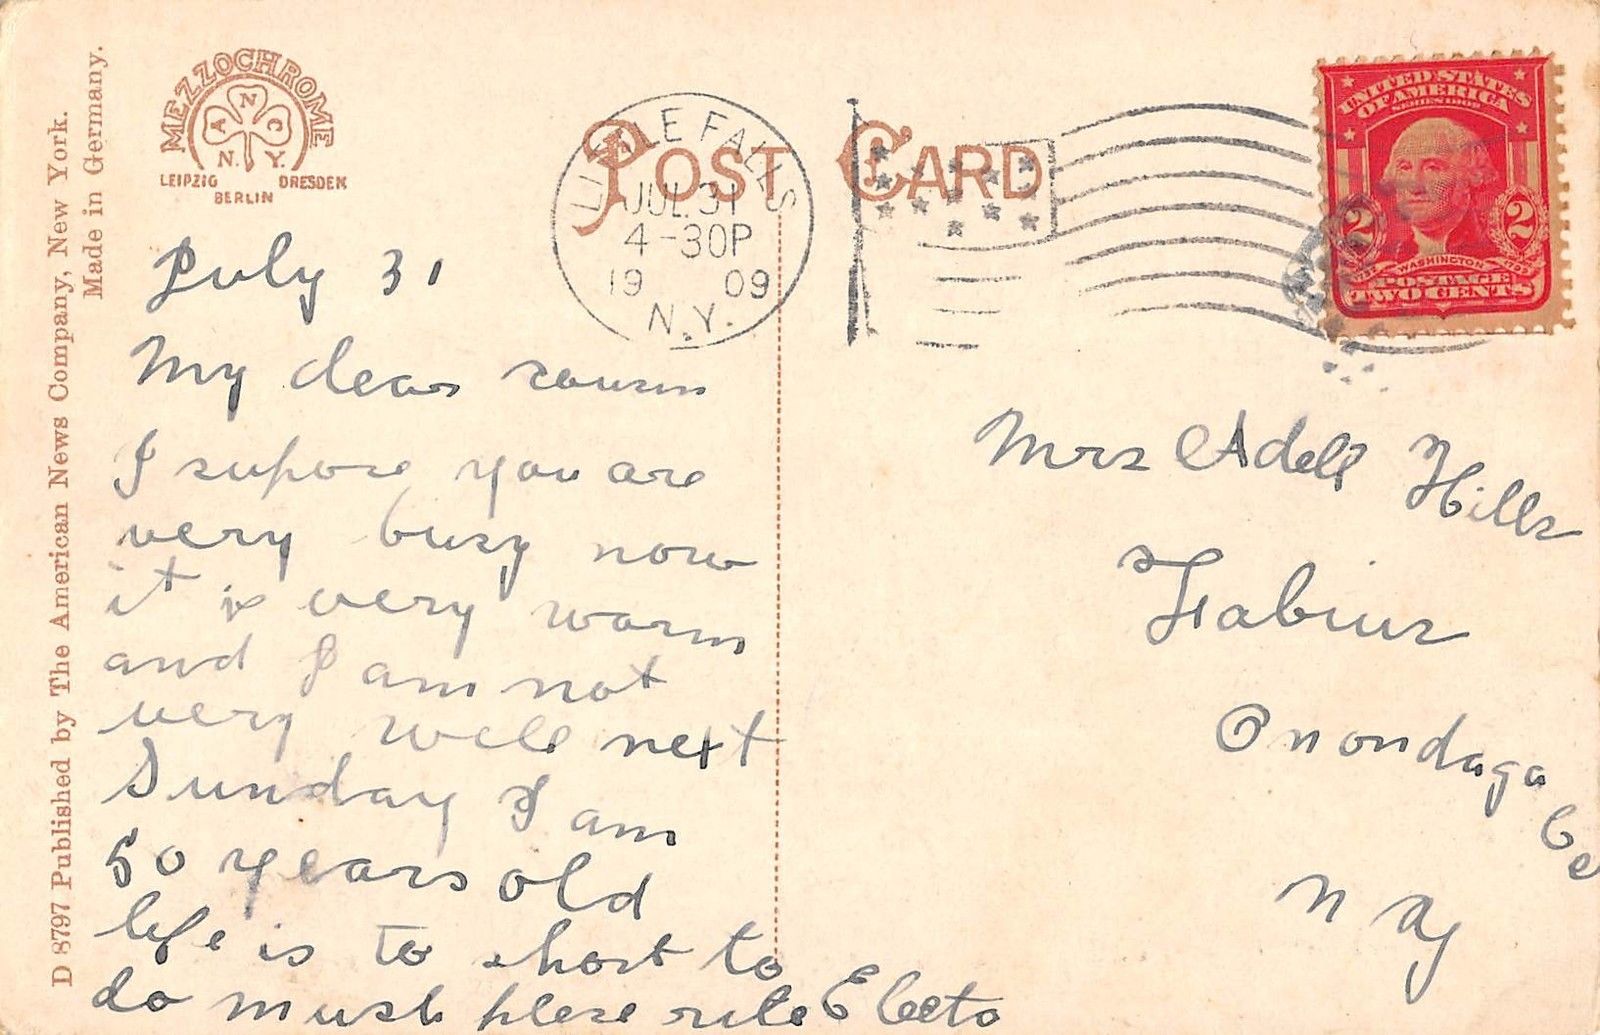 D 8797 Published by The American News Company, New York.
Made in Germany.
MEZZOCHROME
A N C
N. Y.
LEIPZIG DRESDEN
BERLIN
POST CARD
LITTLE FALLS
JUL 31
4-30P
19 09
N.Y.
UNITED STATES
OF AMERICA
SERIES 1902
2 2
1732 WASHINGTON 1799
POSTAGE
TWO CENTS
July 31
My dear cousin
I supose you are
very busy now
it is very warm
and I am not
very well next
Sunday I am
50 years old
life is to short to
do much plese rite Electa
Mrs Adell Hills
Fabius
Onondaga Co
N Y